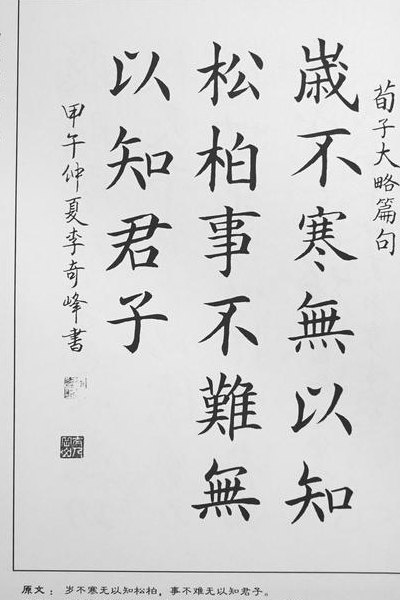 荀子大略篇句
歲不寒無以知
松柏事不難無
以知君子
甲午仲夏李奇峰書
原文：岁不寒无以知松柏，事不难无以知君子。